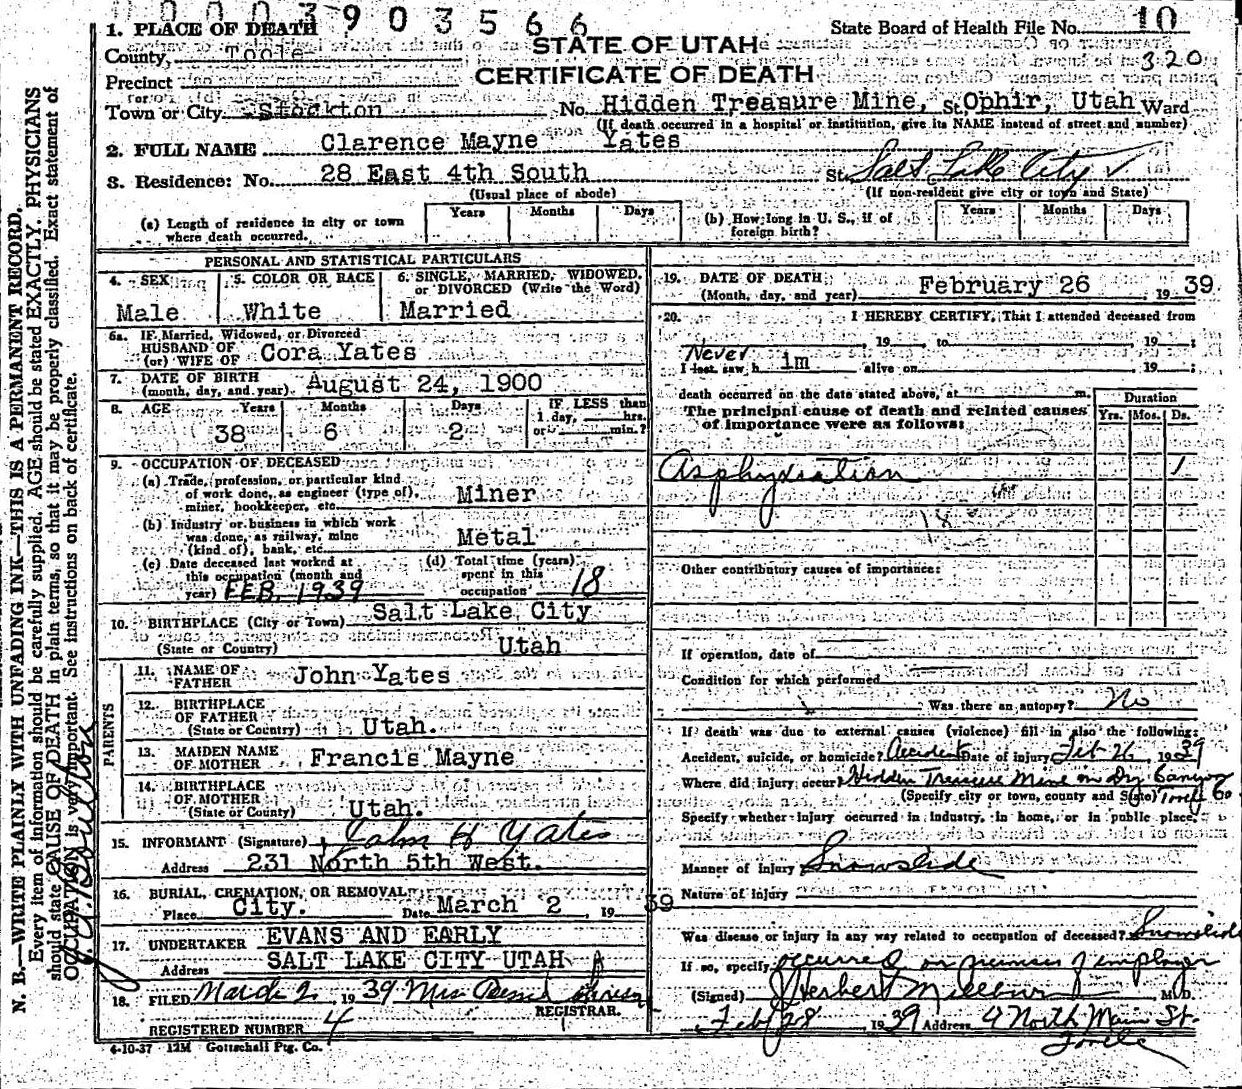 0003903566
1. PLACE OF DEATH
State Board of Health File No. 10
STATE OF UTAH
County, Tooele
320
CERTIFICATE OF DEATH
Precinct
Town or City Stockton No. Hidden Treasure Mine, St. Ophir, Utah Ward
(If death occurred in a hospital or institution, give its NAME instead of street and number)
2. FULL NAME Clarence Mayne Yates
3. Residence: No. 28 East 4th South St. Salt Lake City ✓
(Usual place of abode) (If non-resident give city or town and State)
(a) Length of residence in city or town where death occurred. Years Months Days
(b) How long in U. S., if of foreign birth? Years Months Days
PERSONAL AND STATISTICAL PARTICULARS
4. SEX 5. COLOR OR RACE 6. SINGLE, MARRIED, WIDOWED,
or DIVORCED (Write the Word)
Male White Married
6a. IF Married, Widowed, or Divorced
HUSBAND OF
(or) WIFE OF Cora Yates
7. DATE OF BIRTH
(month, day, and year). August 24, 1900
8. AGE Years Months Days IF LESS than
1 day, hrs.
or min.?
38 6 2
9. OCCUPATION OF DECEASED
(a) Trade, profession, or particular kind
of work done, as engineer (type of),
miner, bookkeeper, etc. Miner
(b) Industry or business in which work
was done, as railway, mine
(kind of), bank, etc. Metal
(c) Date deceased last worked at
this occupation (month and
year) FEB. 1939
(d) Total time (years)
spent in this
occupation 18
10. BIRTHPLACE (City or Town) Salt Lake City
(State or Country) Utah
PARENTS
11. NAME OF
FATHER John Yates
12. BIRTHPLACE
OF FATHER
(State or Country) Utah.
13. MAIDEN NAME
OF MOTHER Francis Mayne
14. BIRTHPLACE
OF MOTHER
(State or Country) Utah.
15. INFORMANT (Signature) John H Yates
Address 231 North 5th West.
16. BURIAL, CREMATION, OR REMOVAL
Place City. Date March 2, 19 39
17. UNDERTAKER EVANS AND EARLY
Address SALT LAKE CITY UTAH
18. FILED March 2, 1939 Mrs
REGISTRAR.
REGISTERED NUMBER 4
4-10-37 12M Gottschall Ptg. Co.
19. DATE OF DEATH
(Month, day, and year) February 26, 1939
20. I HEREBY CERTIFY, That I attended deceased from
Never, 19 to 19 ;
I last saw h im alive on 19 ;
death occurred on the date stated above, at m.
The principal cause of death and related causes
of importance were as follows:
Duration
Yrs. Mos. Ds.
Asphyxiation 1
Other contributory causes of importance:
If operation, date of
Condition for which performed
Was there an autopsy? No
If death was due to external causes (violence) fill in also the following:
Accident, suicide, or homicide? Accident Date of injury Feb 26, 1939
Where did injury occur? Hidden Treasure Mine in Dry Canyon
(Specify city or town, county and State) Tooele Co
Specify whether injury occurred in industry, in home, or in public place,
Manner of injury Snowslide
Nature of injury
Was disease or injury in any way related to occupation of deceased? Snowslide
If so, specify occurred on premises of employer
(Signed) J Herbert Millburn M. D.
Feb 28 1939 Address 9 North Main St.
Tooele
N. B.—WRITE PLAINLY WITH UNFADING INK—THIS IS A PERMANENT RECORD.
Every item of information should be carefully supplied. AGE should be stated EXACTLY. PHYSICIANS
should state CAUSE OF DEATH in plain terms, so that it may be properly classified. Exact statement of
OCCUPATION is very important. See instructions on back of certificate.